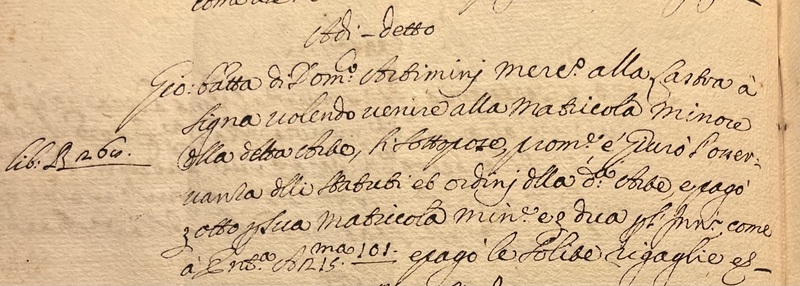 Adi – detto
Gio: Batta di Dom.co Arbiminj merc.o alla Lastra à
Signa volendo venire alla Matricola Minore
della detta Arte, si sottopose, prom.e e Giurò l'osser-
lib: R 264.
vanza delli Statuti et ordinj della d.a Arte e pagò
otto p sua Matricola Min.e e dua come
à Ent.a A 215. 101. e pagò le solite rigaglie es-